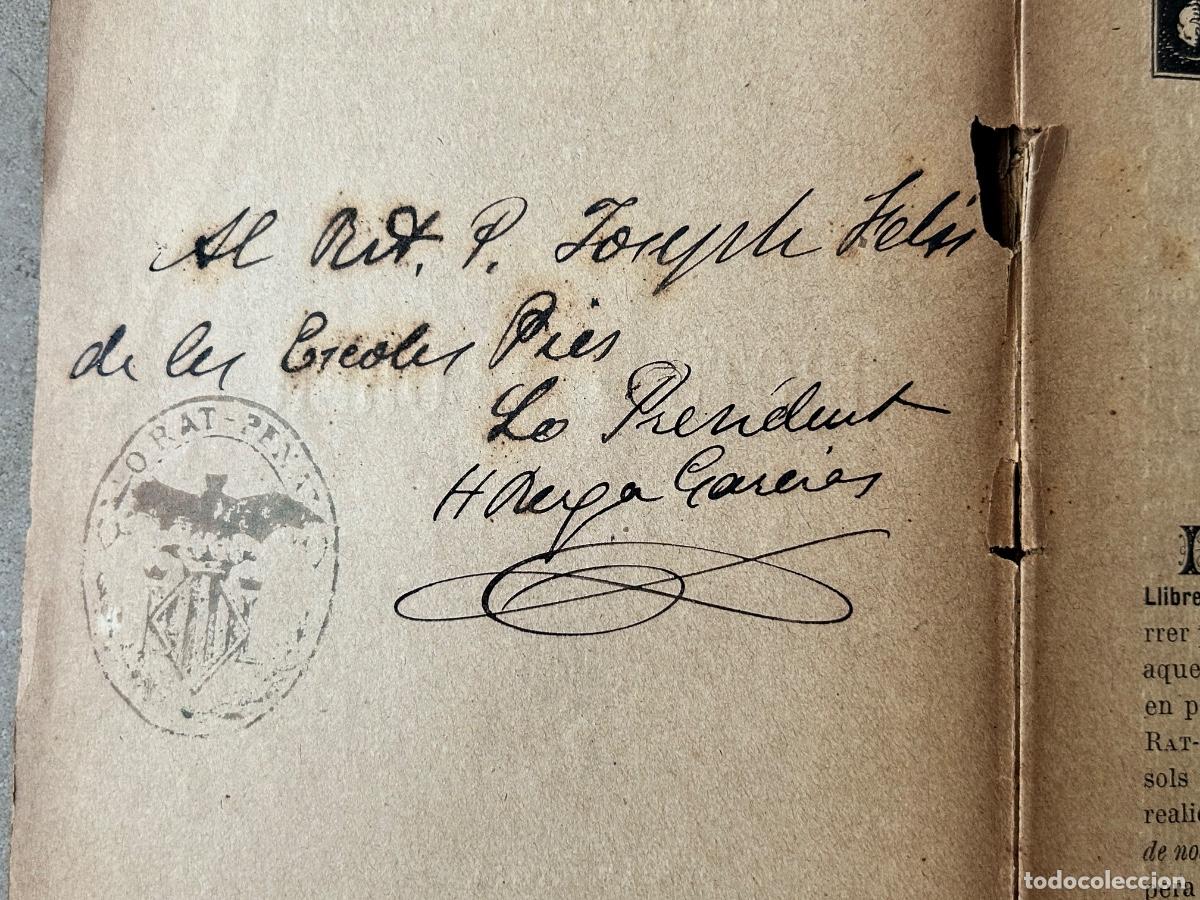 Al Rvt. P. Joseph Felis
de les Escoles Pies
Lo President
H Berga Garcias
LO RAT-PENAT
Llibre
rrer
aque
en p
RAT-
sols
reali
de no
pera
todocoleccion